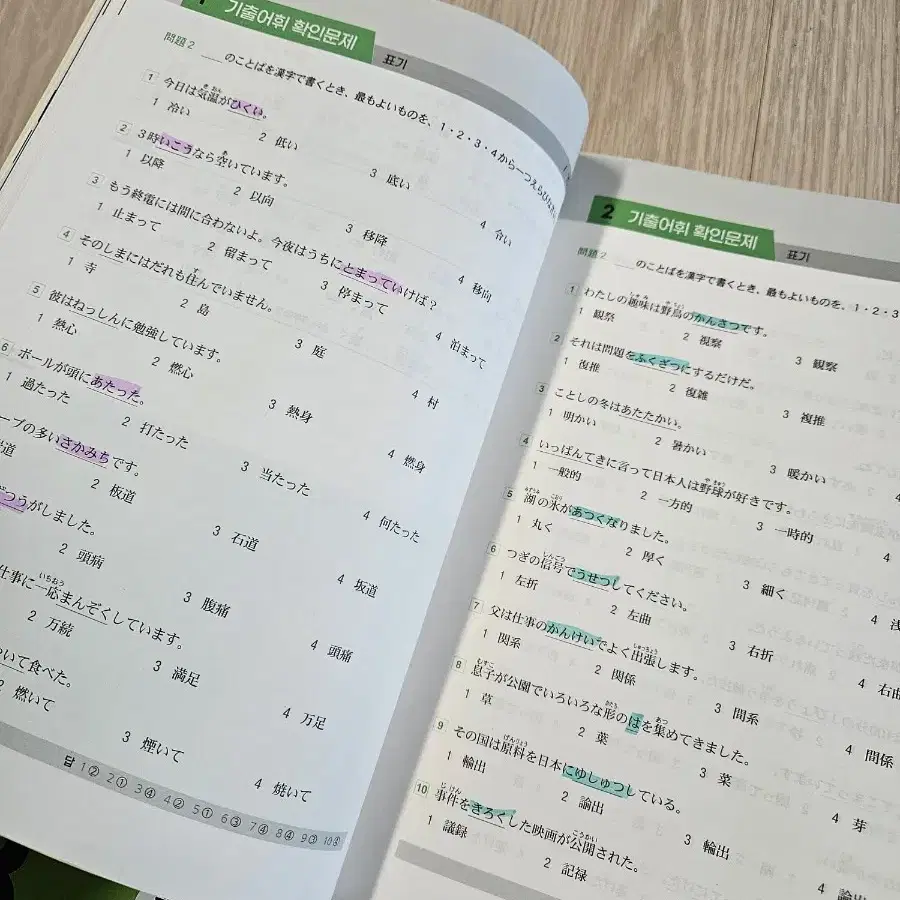 1 기출어휘 확인문제 표기
問題2 ___のことばを漢字で書くとき、最もよいものを、1・2・3・4から一つえらびなさい
1 今日は気温がひくい。
1 冷い 2 低い 3 底い 4 合い
2 3時いこうなら空いています。
1 以降 2 以向 3 移降 4 移向
3 もう終電には間に合わないよ。今夜はうちにとまっていけば?
1 止まって 2 留まって 3 停まって 4 泊まって
4 そのしまにはだれも住んでいません。
1 寺 2 島 3 庭 4 村
5 彼はねっしんに勉強しています。
1 熱心 2 燃心 3 熱身 4 燃身
6 ボールが頭にあたった。
1 過たった 2 打たった 3 当たった 4 何たった
ーブの多いさかみちです。
道 2 板道 3 石道 4 坂道
つうがしました。
2 頭病 3 腹痛 4 頭痛
仕事に一応まんぞくしています。
2 万続 3 満足 4 万足
いて食べた。
2 燃いて 3 煙いて 4 焼いて
답 1② 2① 3④ 4② 5① 6③ 7④ 8④ 9③ 10④
2 기출어휘 확인문제 표기
問題2 ___のことばを漢字で書くとき、最もよいものを、1・2・3
1 わたしの趣味は野鳥のかんさつです。
1 観祭 2 視察 3 観察
2 それは問題をふくざつにするだけだ。
1 復推 2 復雑 3 複推
3 ことしの冬はあたたかい。
1 明かい 2 暑かい 3 暖かい 4
4 いっぱんてきに言って日本人は野球が好きです。
1 一般的 2 一方的 3 一時的 4
5 湖の氷があつくなりました。
1 丸く 2 厚く 3 細く 4 浅
6 つぎの信号でうせつしてください。
1 左折 2 左曲 3 右折 4 右曲
7 父は仕事のかんけいでよく出張します。
1 関系 2 関係 3 間系 4 間係
8 息子が公園でいろいろな形のはを集めてきました。
1 草 2 葉 3 菜 4 芽
9 その国は原料を日本にゆしゅつしている。
1 輸出 2 論出 3 輪出 4 諭出
10 事件をきろくした映画が公開された。
1 議録 2 記禄